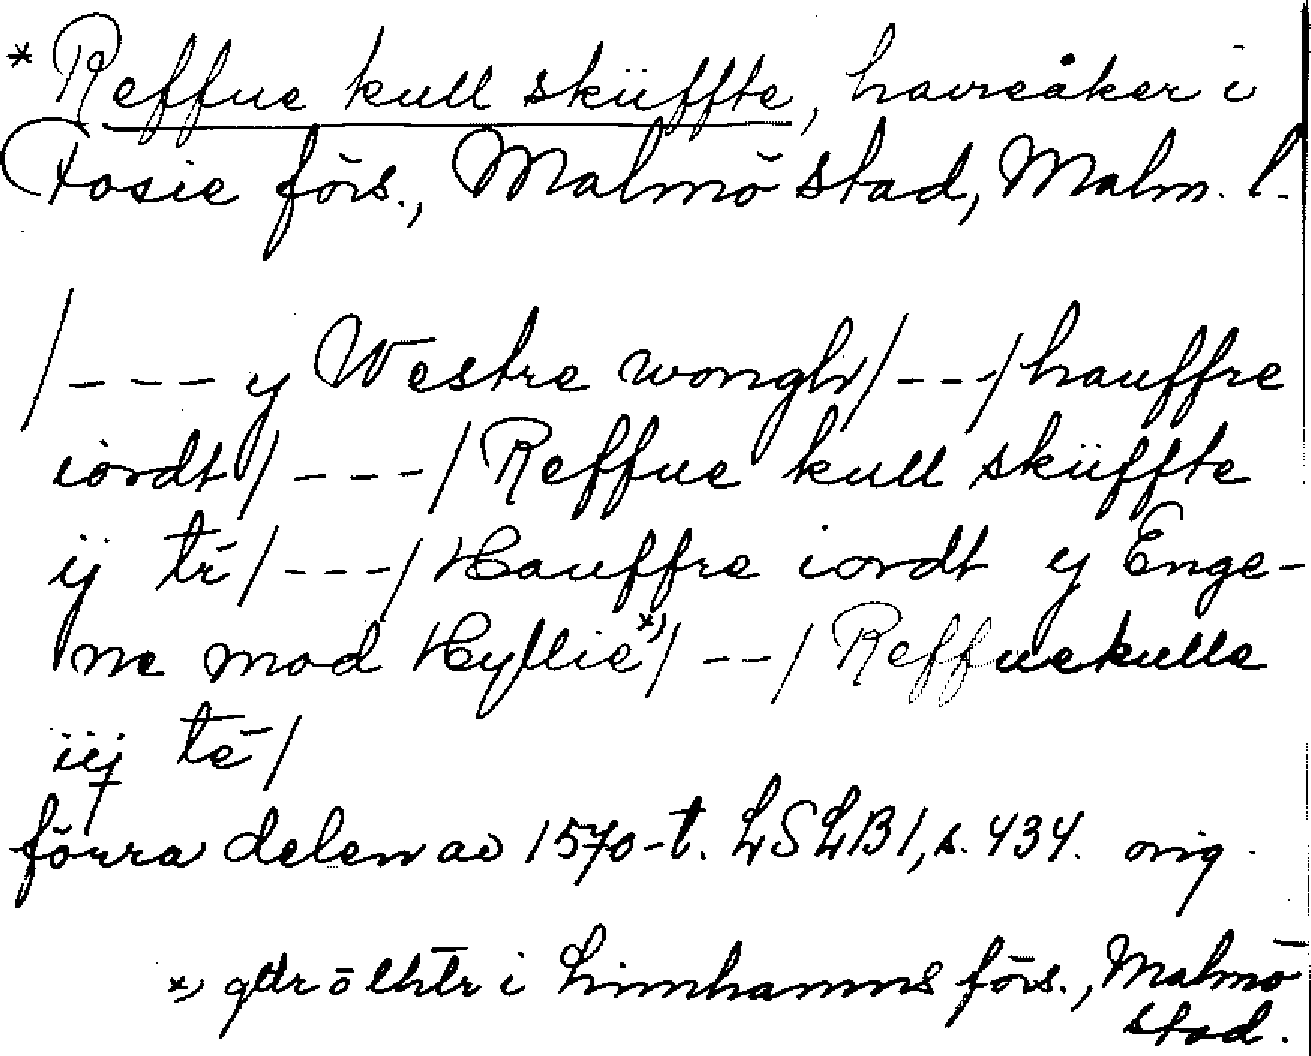 * Reffue kull sküffte, havreåker i
Fosie förs., Malmö stad, Malm. l.
/--- y Westre wongh/--/hauffre
iordt/---/Reffue kull sküffte
ij tr̄/---/Hauffre iordt y Enge-
ne mod Hyllie*)/--/Reffuekulle
iij tē/
förra delen av 1570-t. LSLB1, s. 434. orig.
*) gdr o lhtr i Limhamns förs., Malmö
stad.